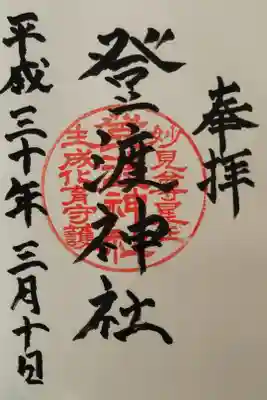 奉拝
登渡神社
妙見尊星王
登渡神社
生成化育守護
平成三十年三月十日